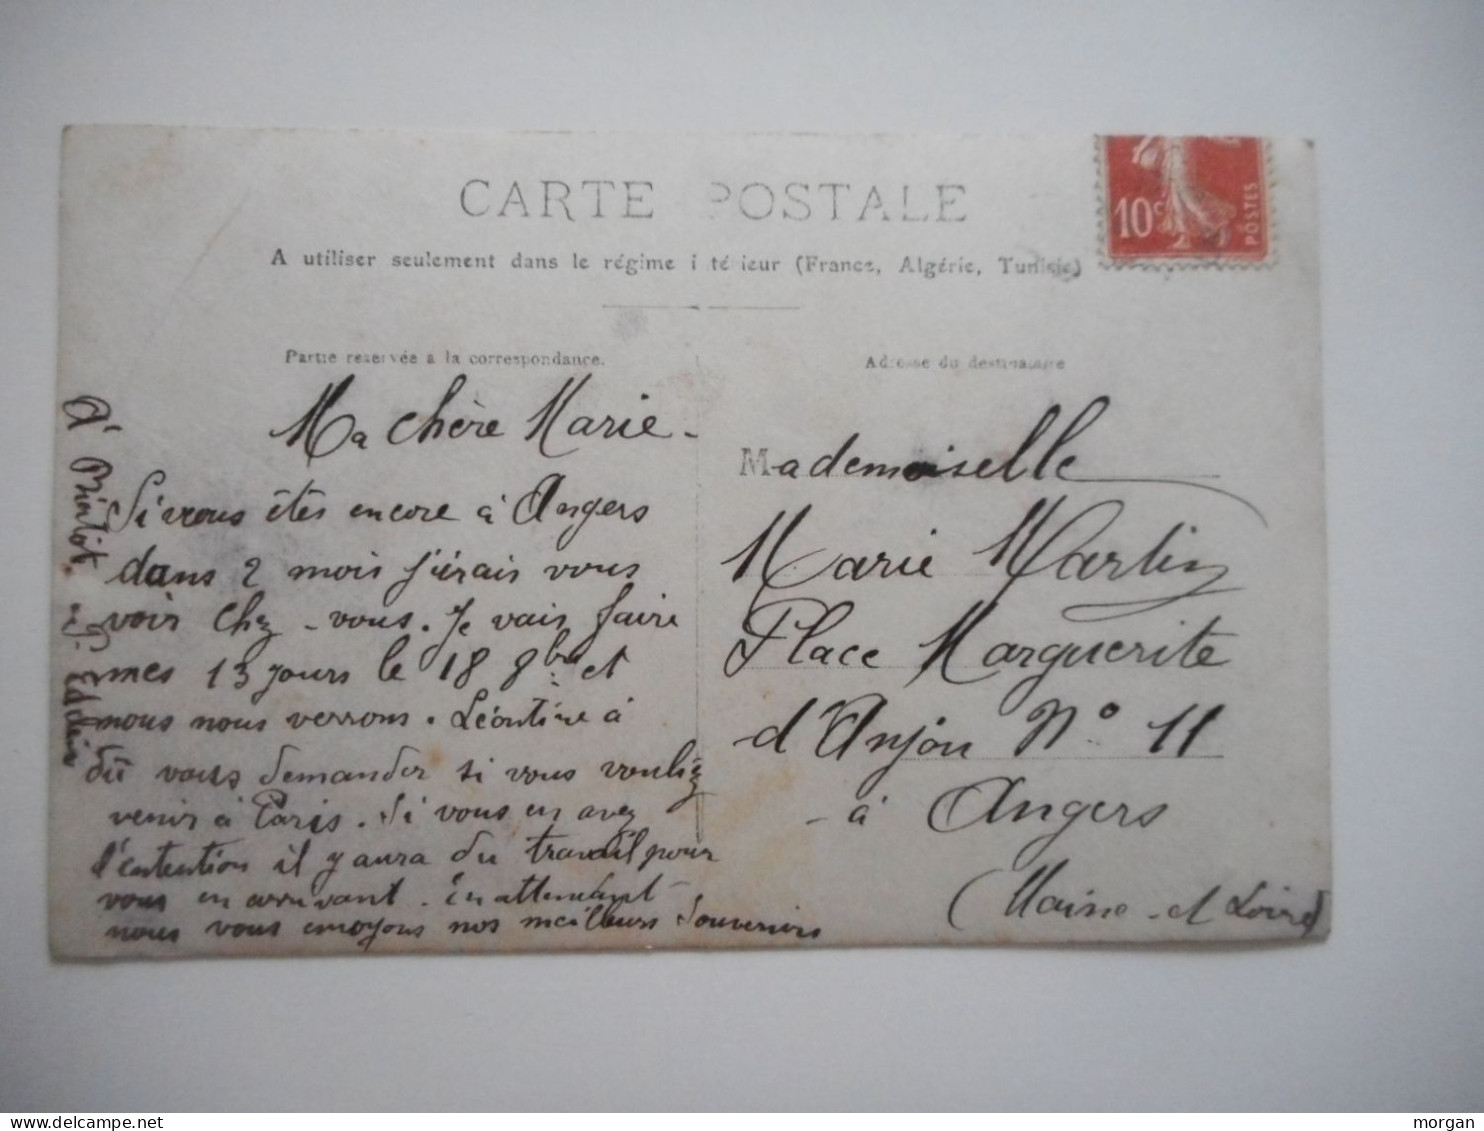 CARTE POSTALE
A utiliser seulement dans le régime intérieur (France, Algérie, Tunisie)
10c
POSTES
Partie reservée a la correspondance.
Adresse du destinataire
Ma chère Marie -
Si vous êtes encore à Angers
dans 2 mois j'iérais vous
voir chez - vous. Je vais faire
mes 13 jours le 18 8bre et
nous nous verrons. Léontine à
dû vous demander si vous vouliez
venir à Paris. Si vous en avez
l'entention il y aura du travail pour
vous en arrivant. En attendant
nous vous envoyons nos meilleurs Souvenirs
A Bientot
Mademoiselle
Marie Martin
Place Marguerite
d'Anjou N° 11
- à Angers
(Maine et Loire)
morgan